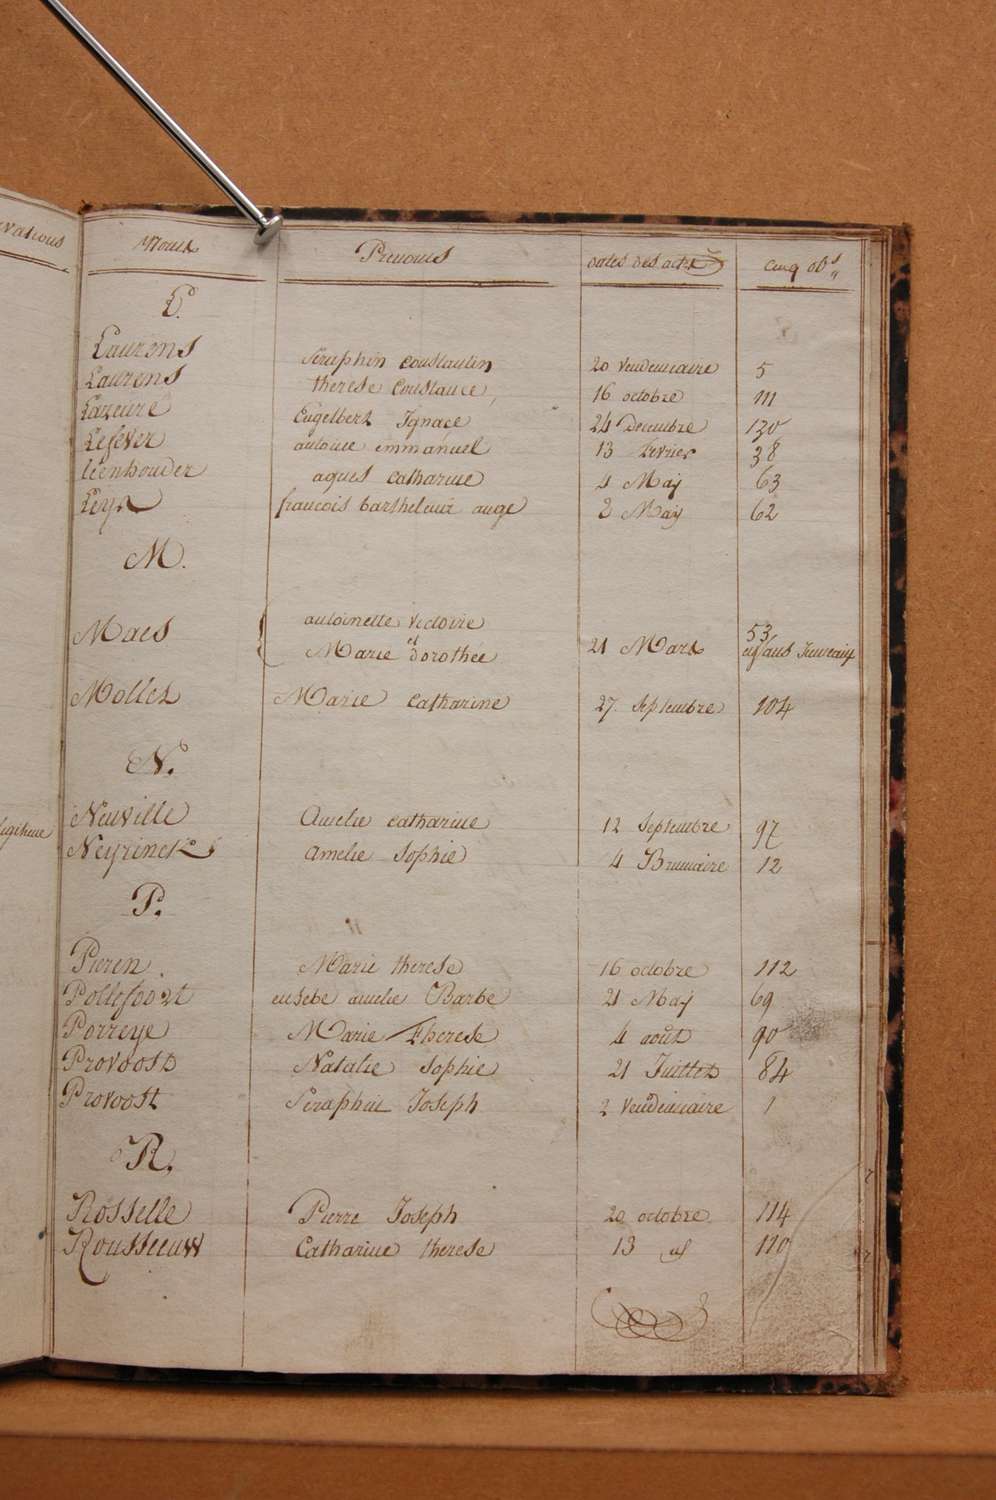 vations
Noms Prenoms dates des actes
L.
Laurens Seraphin Constantin 20 Vendemiaire 5
Laurens therese Constance, 16 octobre 111
Lazeure Engelbert Ignace 24 Decembre 130
Lefever antoine emmanuel 13 fevrier 38
leenhouder agnes catharine 4 Maij 63
Leys francois barthelemi ange 2 Maij 62
M.
Maes antoinette victoire
et
Marie dorothée 21 Mars 53
enfans Jumeaux
Molles Marie Catharine 27 Septembre 104
N.
Neuville Amelie catharine 12 Septembre 97
Neyrinck Amelie Sophie 4 Brumaire 12
legitime
P.
Pieren Marie therese 16 octobre 112
Pollefoort eusebe amelie Barbe 21 Maij 69
Porreye Marie Therese 4 août 90
Provoost Natalie Sophie 21 Juillet 84
Provoost Seraphin Joseph 2 Vendemiaire 1
R.
Rosselle Pierre Joseph 20 octobre 114
Rousseeuw Catharine therese 13 110